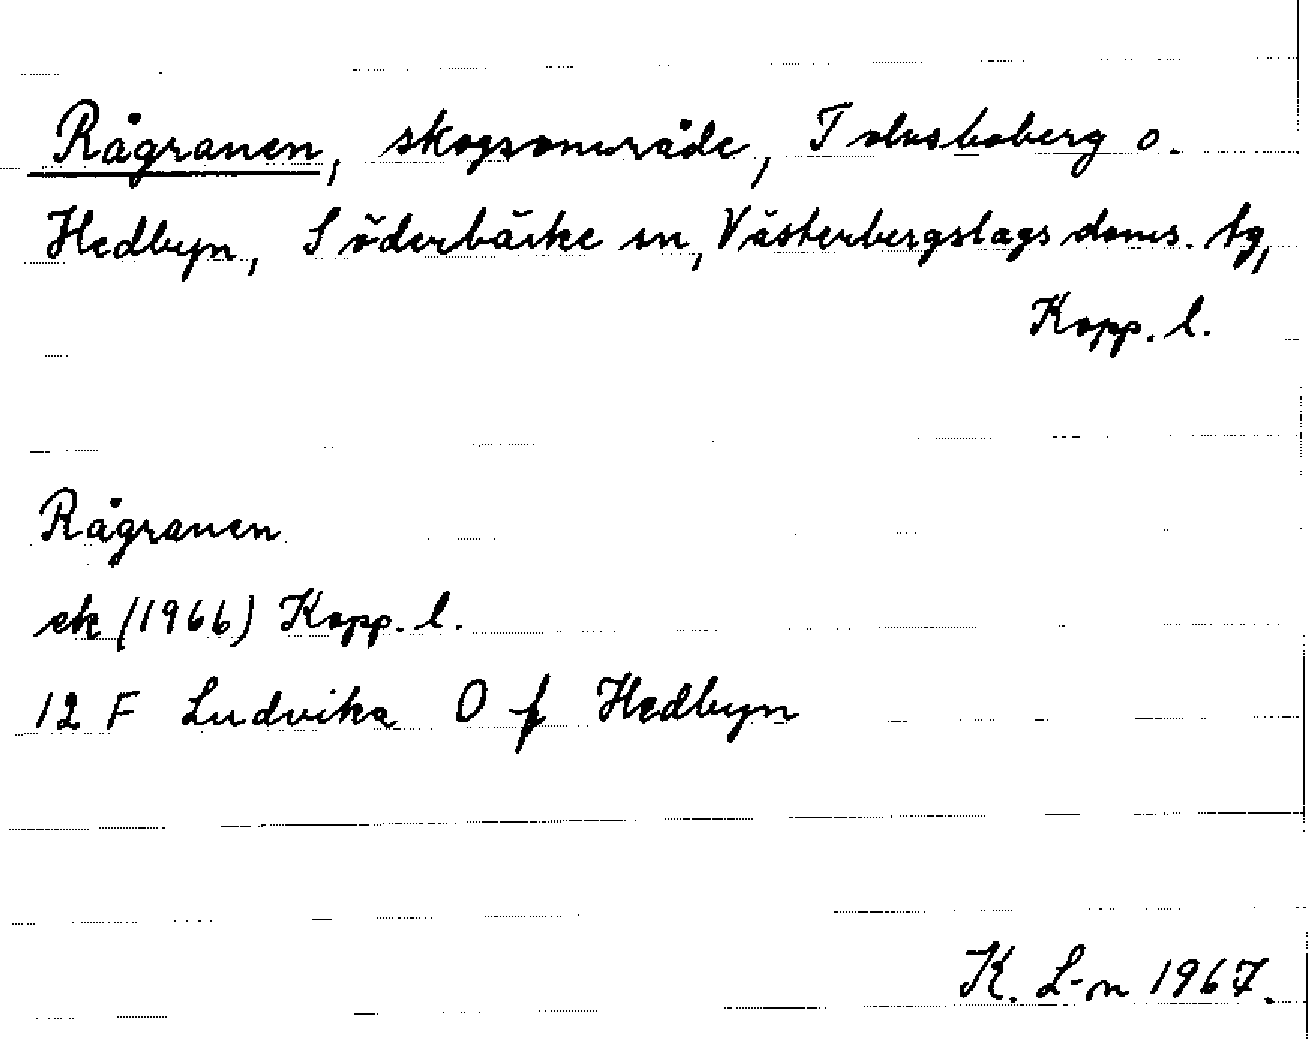 Rågranen, skogsområde, Tolvsboberg o.
Hedbyn, Söderbärke sn, Västerbergslags doms. tg,
Kopp. l.
Rågranen
ek (1966) Kopp. l.
12 F Ludvika 0 f Hedbyn
K. L-n 1967.